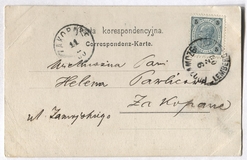 ZAKOPANE
Karta korespondencyjna.
Correspondenz-Karte.
Wielmożna Pani
Helena Pawlica
Zakopane
ul. Zamojskiego